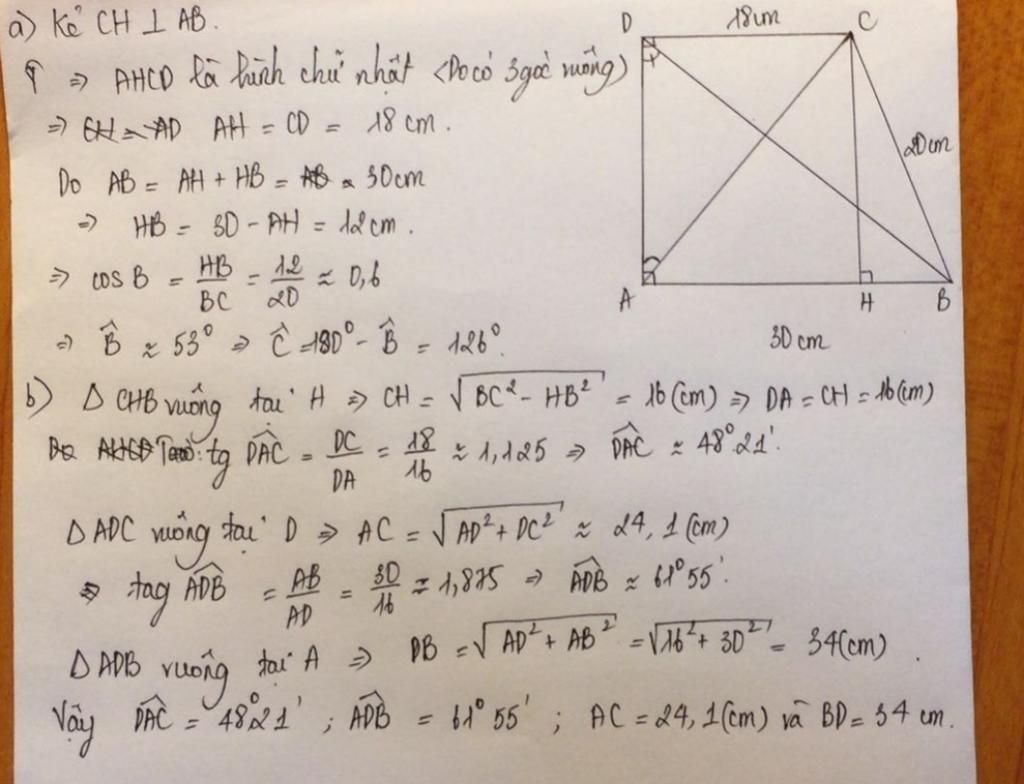 a) Kẻ CH ⊥ AB.
⇒ AHCD là hình chữ nhật (Do có 3 góc vuông)
⇒ CH = AD AH = CD = 18 cm.
Do AB = AH + HB = AB = 30cm
⇒ HB = 30 - AH = 12 cm.
⇒ cos B = HB/BC = 12/20 ≈ 0,6
⇒ B̂ ≈ 53° ⇒ Ĉ = 180° - B̂ = 126°.
D 18cm C
20cm
A H B
30 cm
b) Δ CHB vuông tại H ⇒ CH = √(BC² - HB²) = 16 (cm) ⇒ DA = CH = 16 (cm)
Do AHCD tg DAC = DC/DA = 18/16 ≈ 1,125 ⇒ DAC ≈ 48°21'.
Δ ADC vuông tại D ⇒ AC = √(AD² + DC²) ≈ 24,1 (cm)
⇒ tag ADB = AB/AD = 30/16 ≈ 1,875 ⇒ ADB ≈ 61°55'.
Δ ADB vuông tại A ⇒ DB = √(AD² + AB²) = √(16² + 30²) = 34 (cm).
Vậy DAC = 48°21' ; ADB = 61°55' ; AC = 24,1 (cm) và BD = 34 cm.